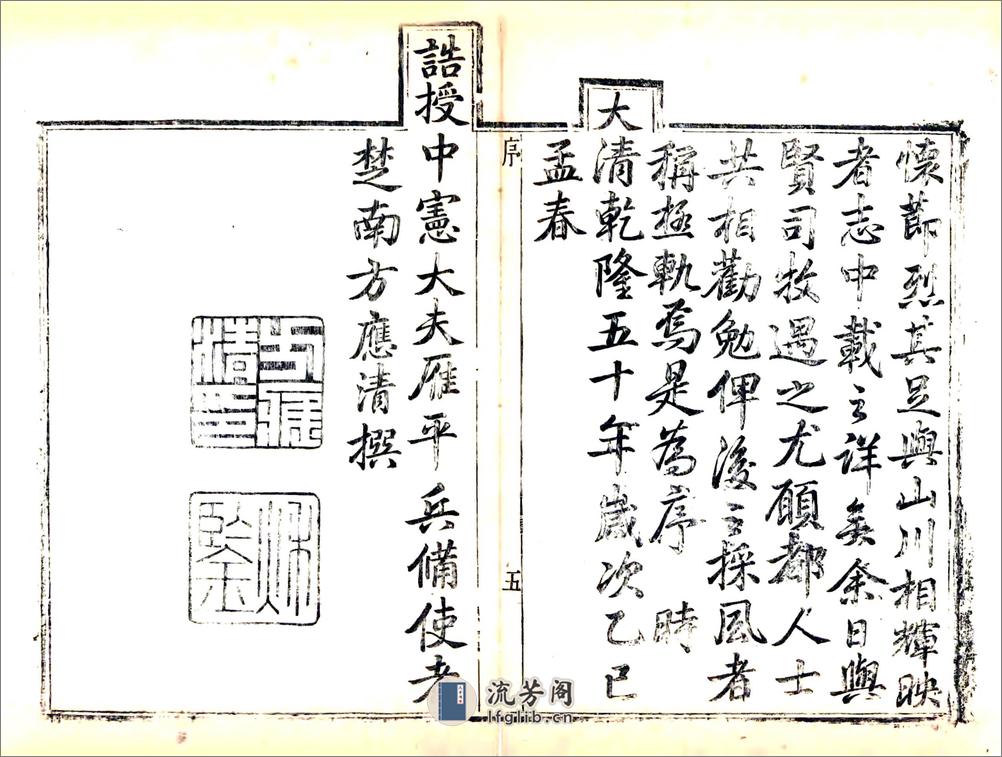 懷節烈其足與山川相輝映
者志中載之詳矣余日與
賢司牧遇之尤願都人士
共相勸勉俾後之採風者
稱極軌焉是為序 時
大清乾隆五十年歲次乙巳
孟春
序
五
誥授中憲大夫雁平兵備使者
楚南方應清撰
流芳阁
lfglib.cn